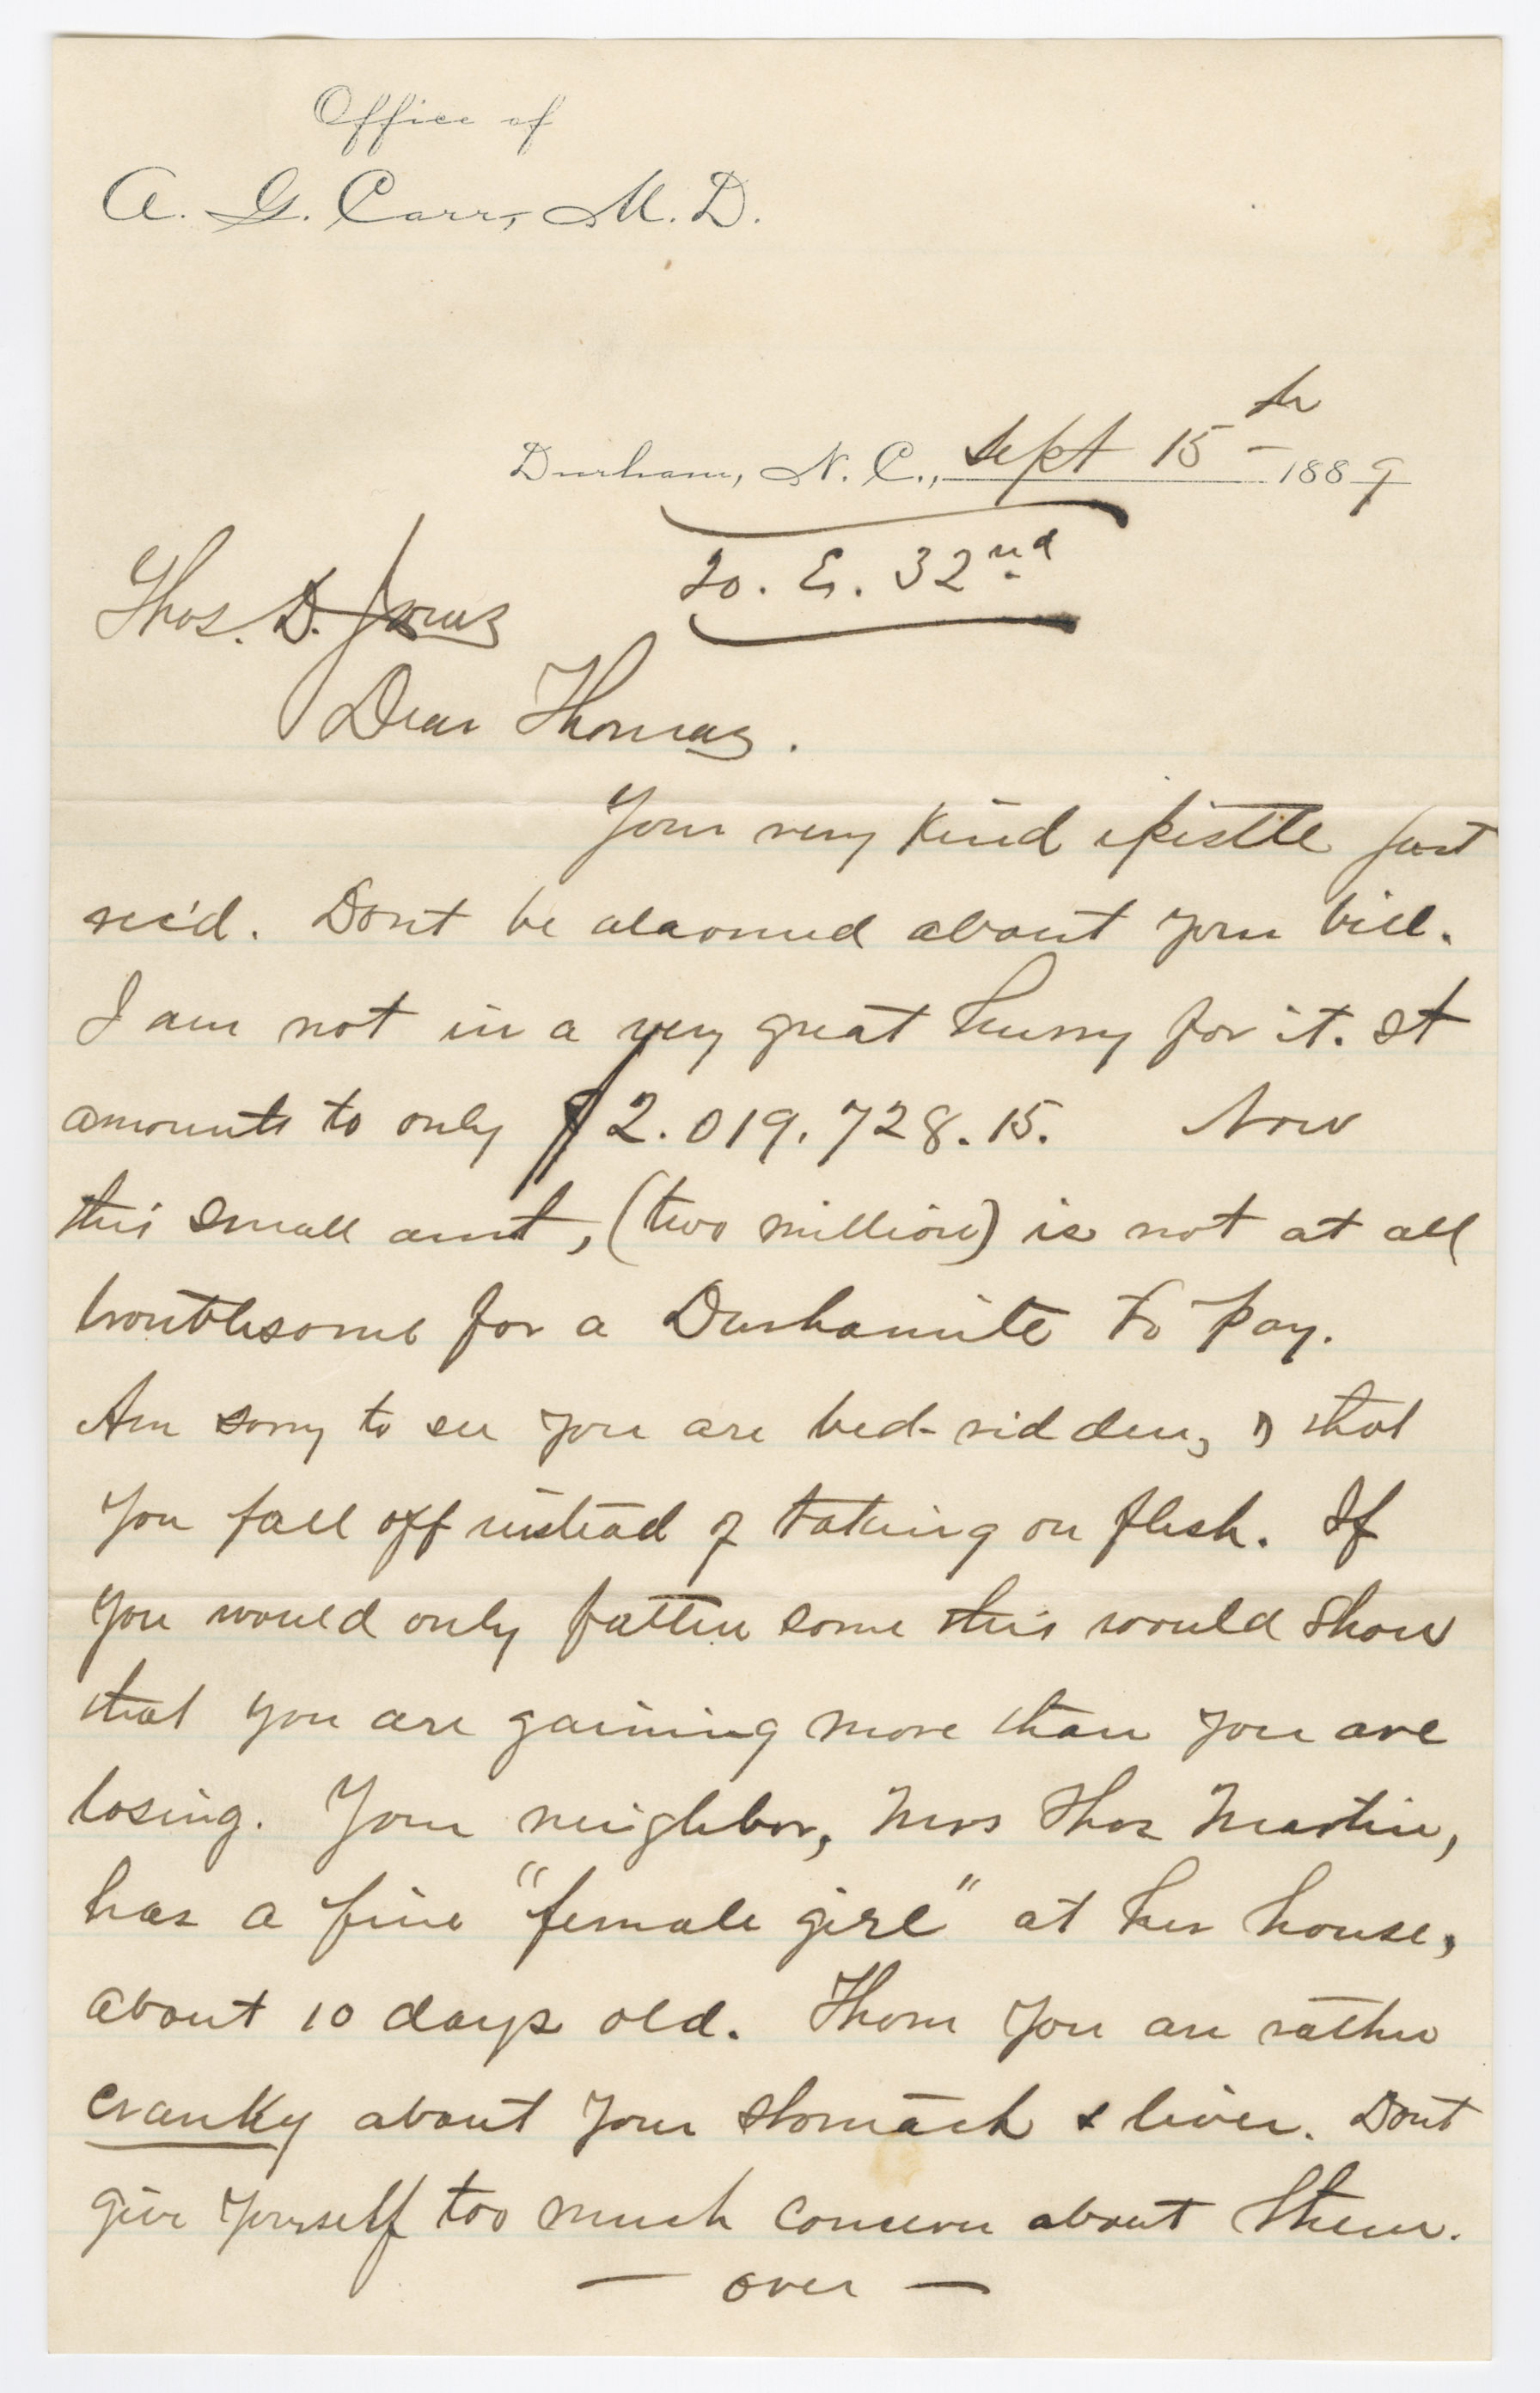 Office of
A. G. Carr, M. D.
Durham, N. C., Sept 15th 1889
20. E. 32nd
Thos. D. Jones
Dear Thomas.
Your very kind epistle just
rec'd. Dont be alarmed about your bill.
I am not in a very great hurry for it. It
amounts to only $2.019.728.15. Now
this small amt, (two million) is not at all
troublesome for a Durhamite to pay.
Am sorry to see you are bed-ridden, & that
you fall off instead of taking on flesh. If
you would only fatten some this would show
that you are gaining more than you are
losing. Your neighbor, Mrs Thos Martin,
has a fine "female girl" at her house,
about 10 days old. Thom you are rather
cranky about your stomach & liver. Dont
give yourself too much concern about them.
— over —